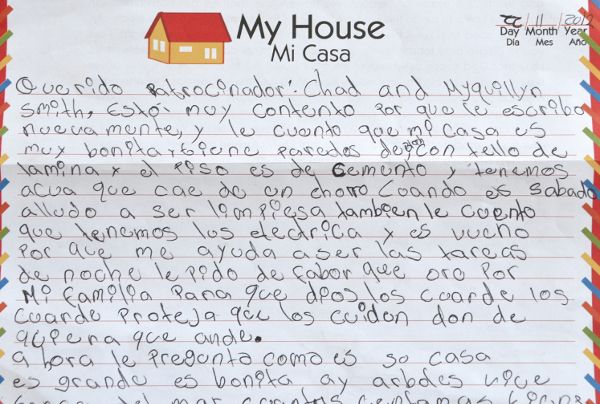 My House
Mi Casa
22/11/2012
Day Month Year
Día Mes Año
Querido Patrocinador: Chad and Myquillyn
Smith, Estoi muy contento Por que le escribo
nuevamente, y le cuento que mi casa es
muy bonita tiene paredes de con tello de
lamina y el Piso es de cemento y tenemos
acua que cae de un chorro Cuando es sabado
alludo a ser limpiesa tambien le cuento
que tenemos lus electrica y es vueno
Por que me ayuda a ser las tareas
de noche le Pido de fabor que ore Por
Mi familia Para que dios los cuarde los
cuarde Proteja que los cuiden don de
quiera que ande.
ahora le Pregunto como es su casa
es grande es bonita ay arboles vive
del mar cuantas